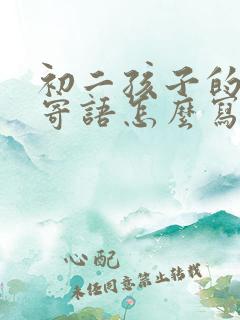 初二孩子的
寄語怎麼寫
心配
未经同意禁止转载